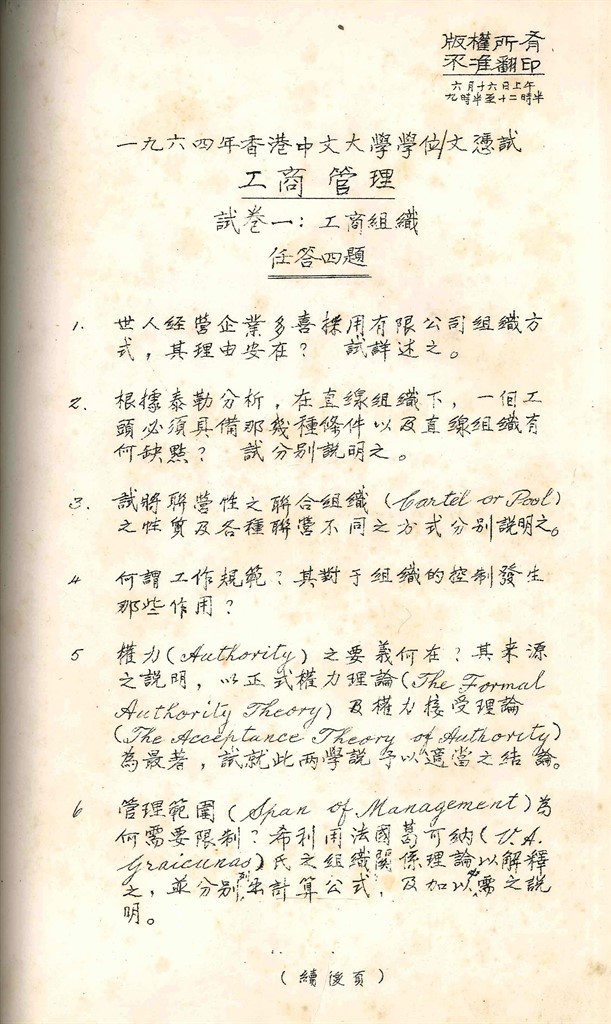 版權所有
不准翻印
六月十六日上午
九時半至十二時半
一九六四年香港中文大學學位/文憑試
工商管理
試卷一：工商組織
任答四題
1. 世人經營企業多喜採用有限公司組織方
式，其理由安在？ 試詳述之。
2. 根據泰勒分析，在直線組織下，一個工
頭必須具備那幾種條件以及直線組織有
何缺點？ 試分別說明之。
3. 試將聯營性之聯合組織 (Cartel or Pool)
之性質及各種聯營不同之方式分別說明之。
4 何謂工作規範？其對于組織的控制發生
那些作用？
5 權力 (Authority) 之要義何在？其來源
之說明，以正式權力理論 (The Formal
Authority Theory) 及權力接受理論
(The Acceptance Theory of Authority)
為最著，試就此兩學說予以適當之結論。
6 管理範圍 (Span of Management) 為
何需要限制？希利用法國葛可納 (V. A.
Graicunas) 氏之組織關係理論以解釋
之，並分別列出計算公式，及加以必需之說
明。
(續後頁)